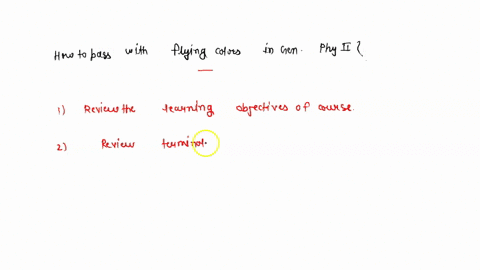 How to pass with flying colors in Gen. Phy II {
1) Review the learning objectives of course.
2) Review terminol.